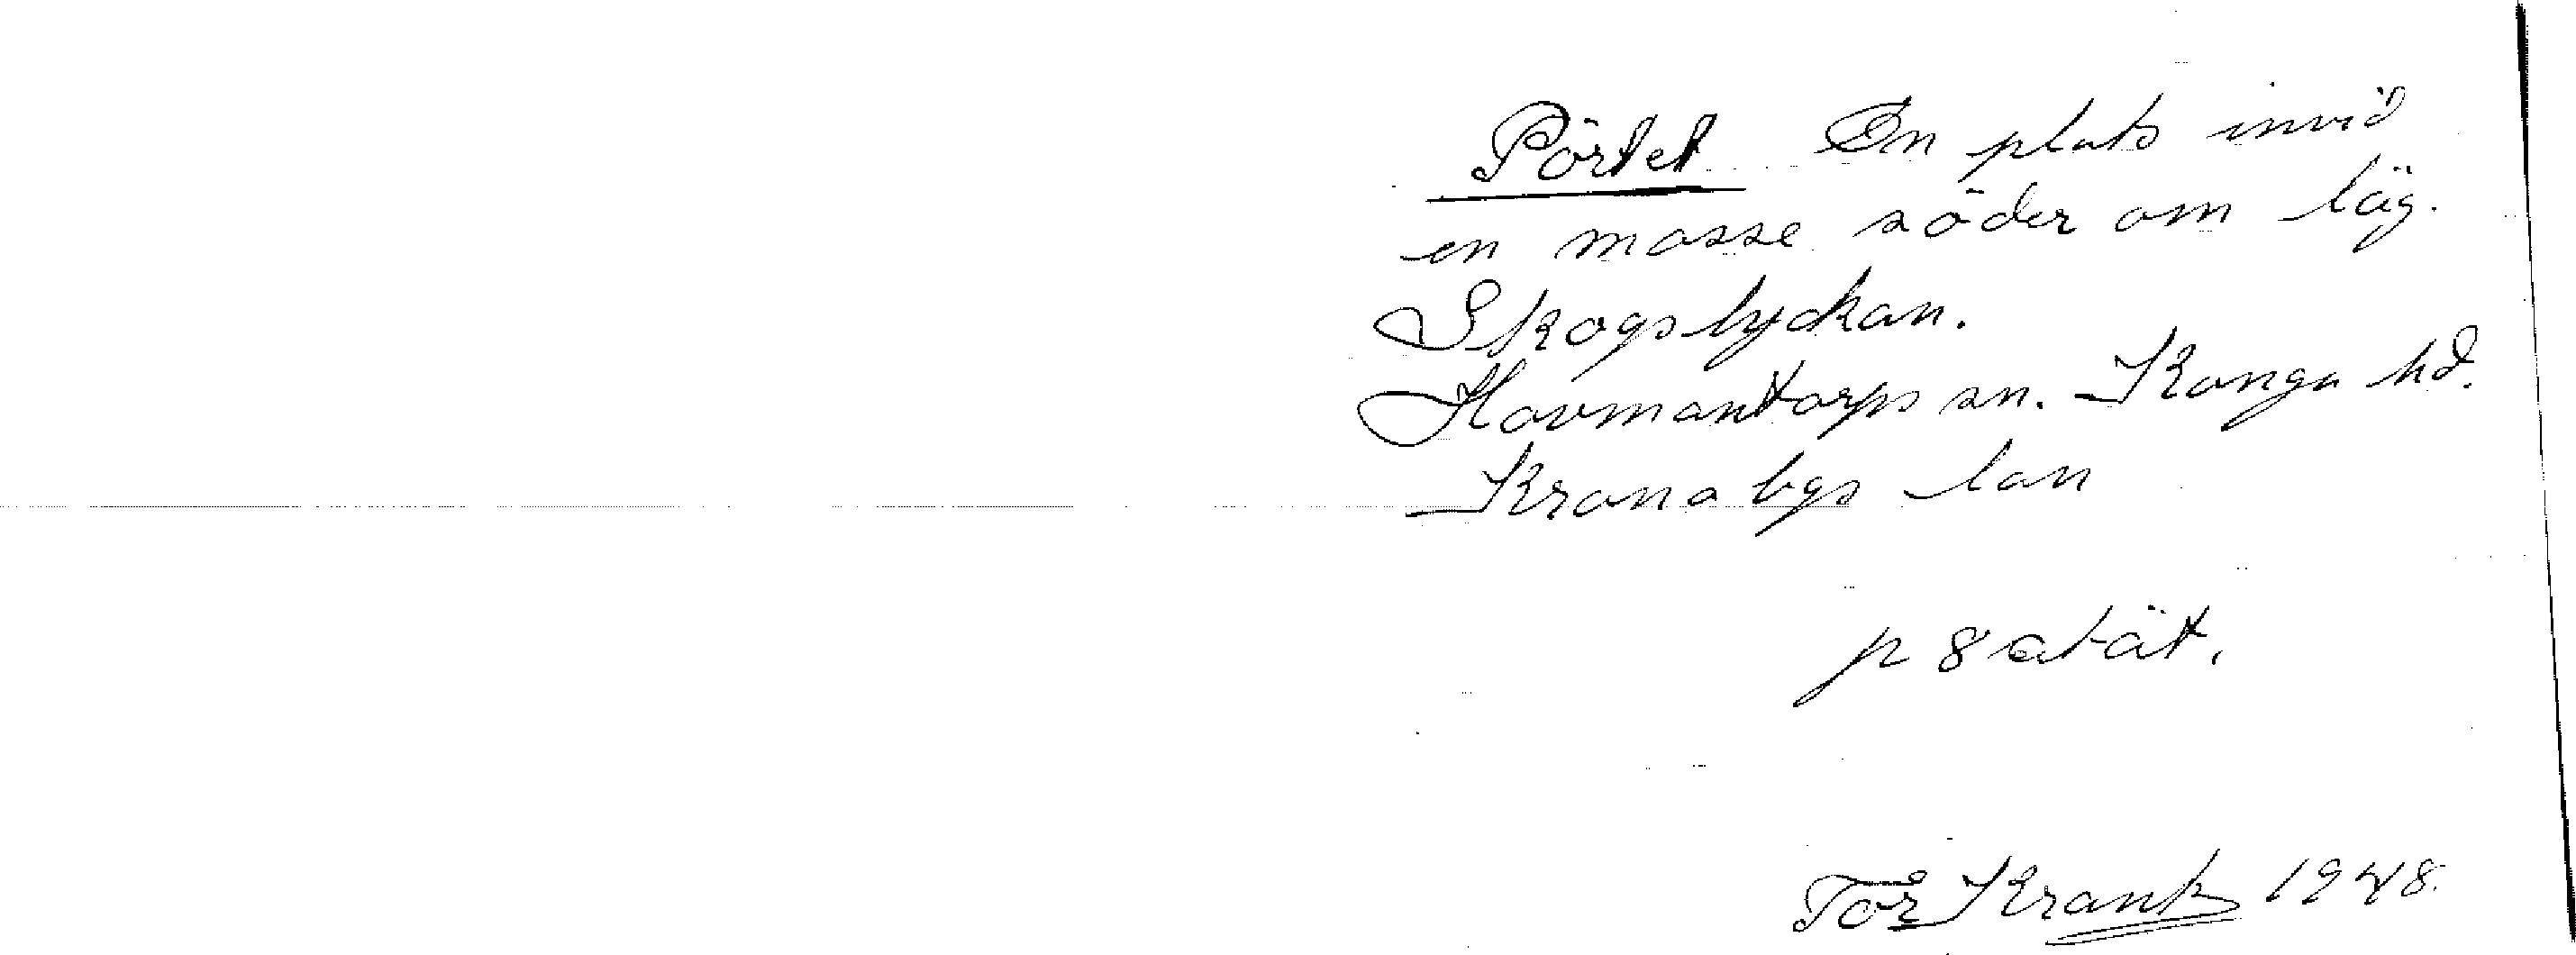 Pörtet En plats invid
en mosse söder om läg.
Skogslyckan.
Hovmantorps sn. Konga hd.
Kronobgs lan
Tor Krank 1948.